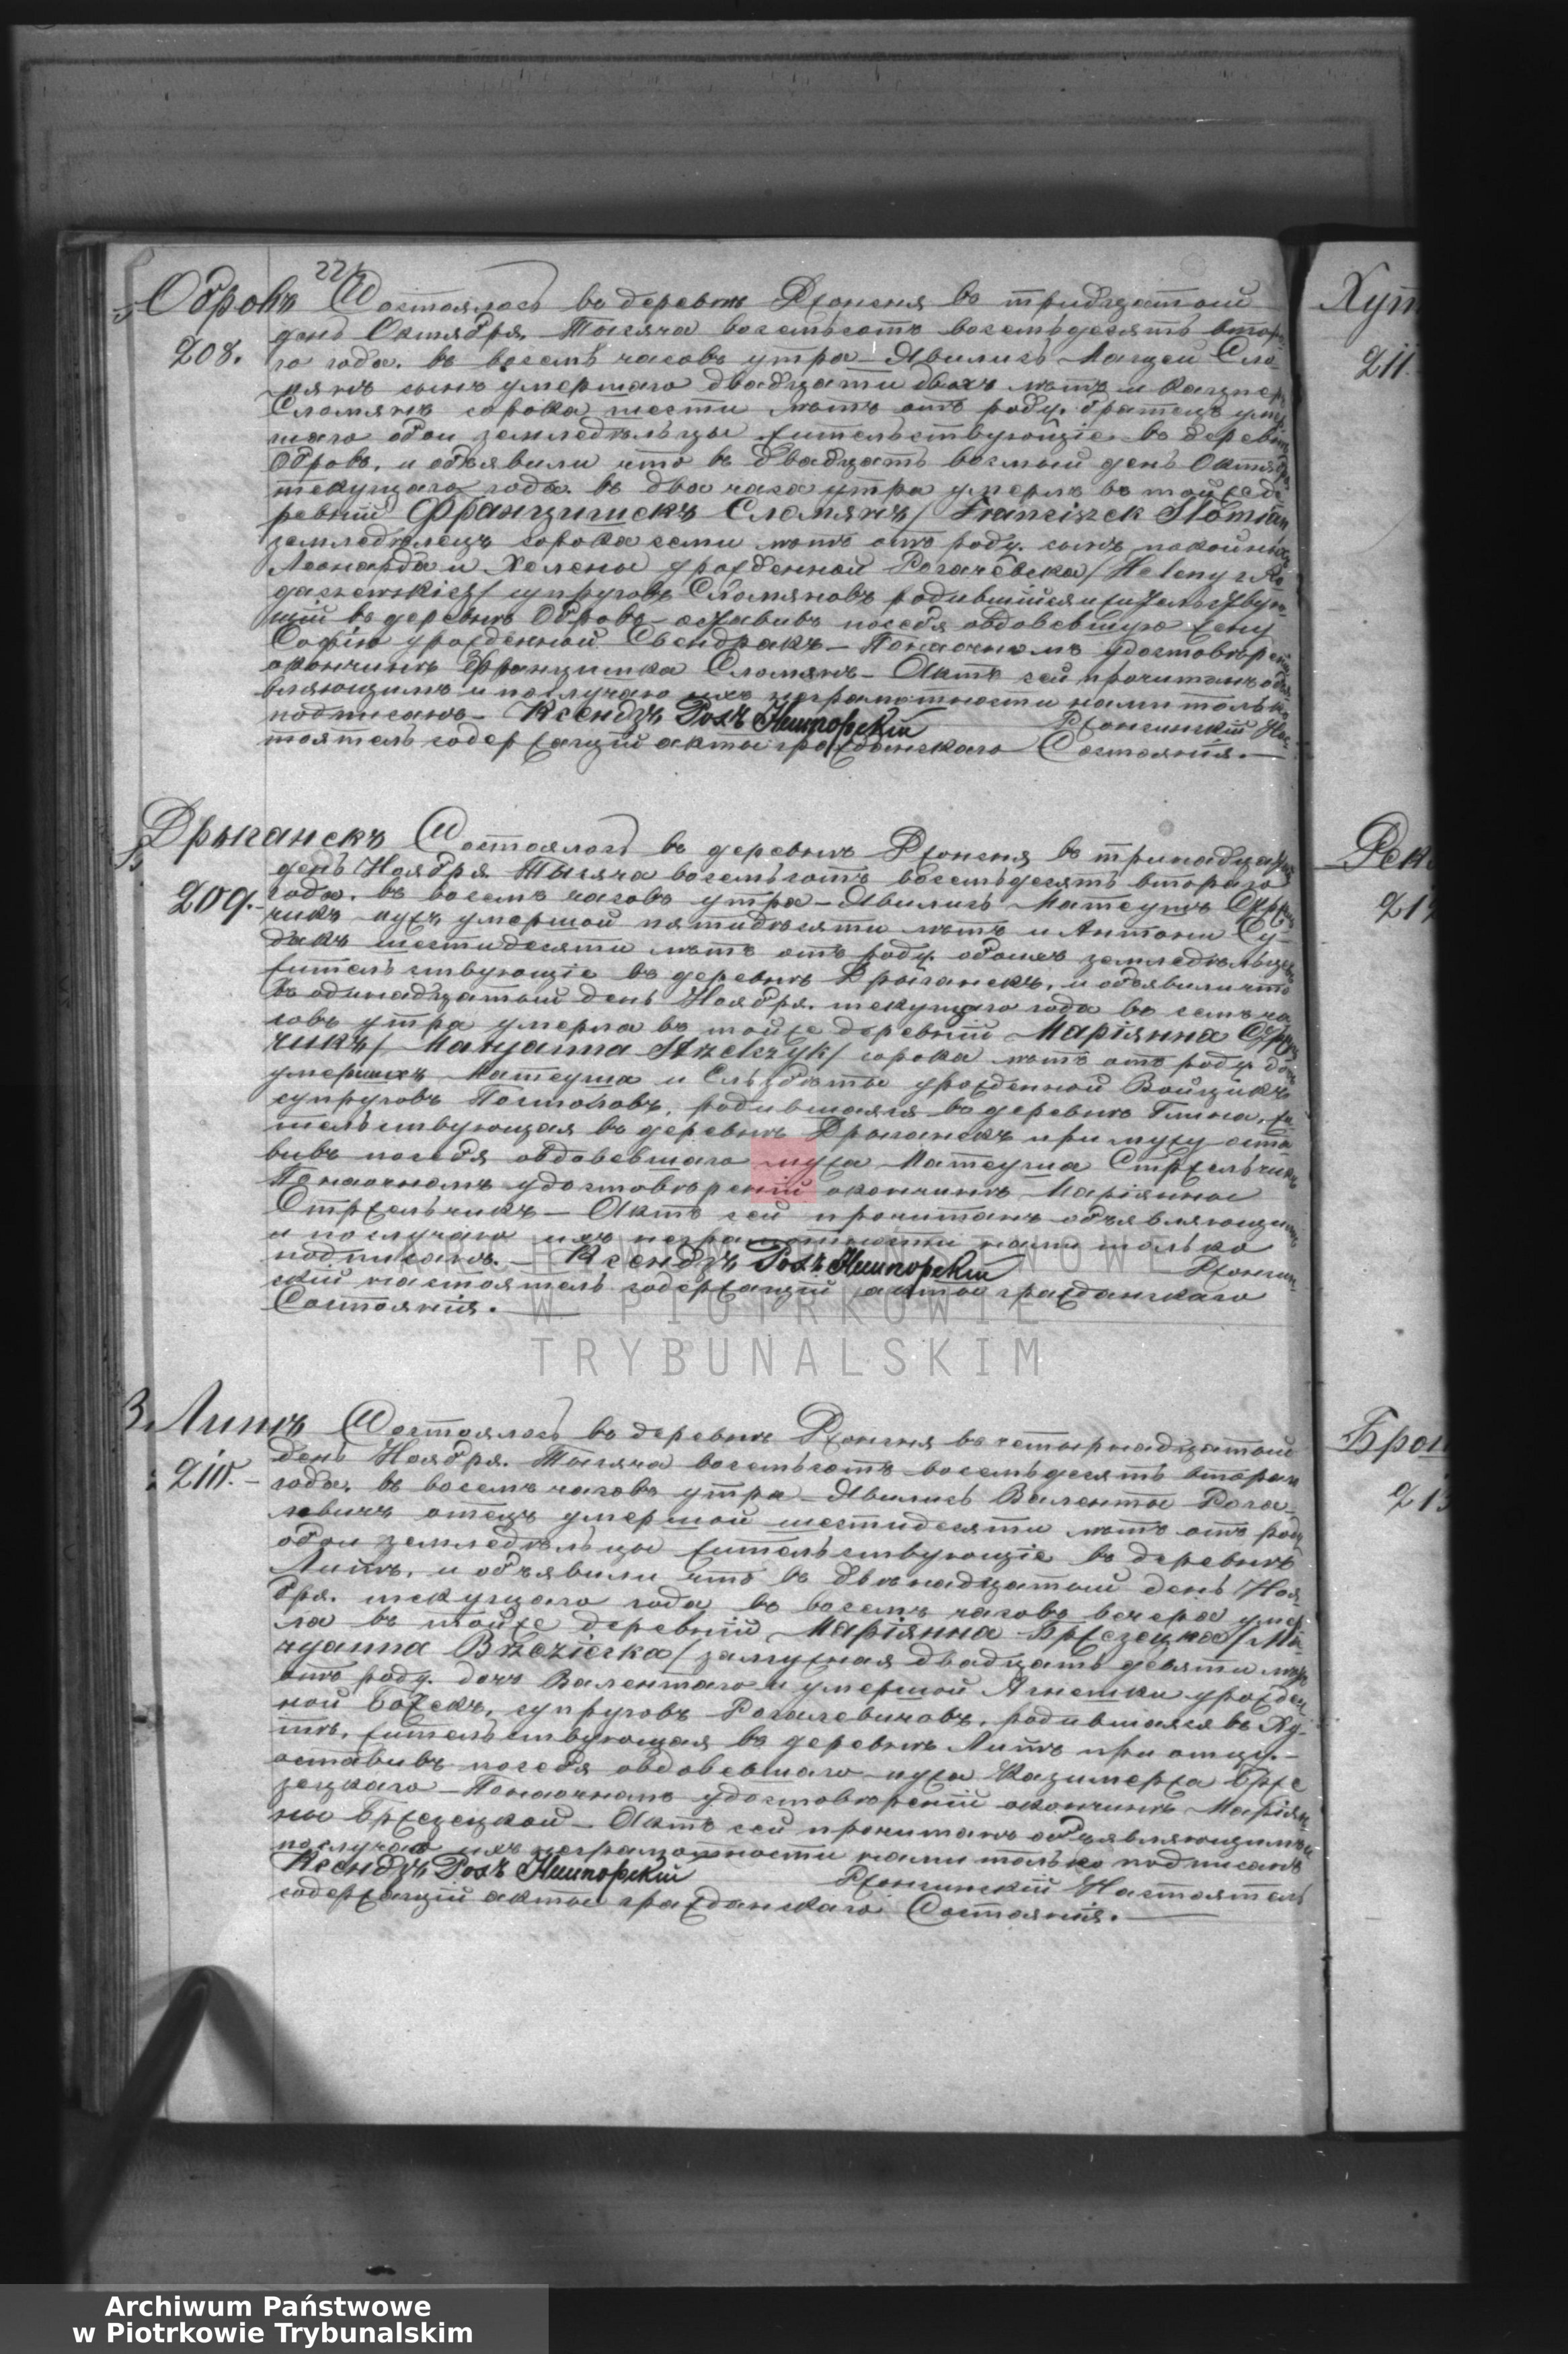 Обровъ
208.
Состоялось въ деревнѣ Рżонсня въ тридцатый
день Октября, Тысяча восемьсотъ восемьдесятъ второ-
го года, въ восемь часовъ утра – Явились Мацей Сло-
мянъ сынъ умершаго двадцати двохъ лѣтъ и Кацпер
Сломянъ сорока шести лѣтъ отъ роду, братецъ умер-
шаго обои земледѣльцы жительствующіе въ деревнѣ
Обровъ, и объявили что въ двадцать восмый день Октября
текущаго года, въ два часа утра умерлъ въ той же де-
ревнѣ Францишекъ Сломянъ / Franciszek Słomian
земледѣлецъ сорока семи лѣтъ отъ роду, сынъ покойныхъ
Леонарда и Хелены урожденной Рогачевска / Heleny z Ro-
gaszewskich / супруговъ Сломяновъ родившійся и жительствую-
щій въ деревнѣ Обровъ – оставивъ послѣ овдовевшую жену
Софію урожденной Свендракъ – Понаочномъ удостовѣреніи
окончинѣ Францишка Сломянъ – Актъ сей прочитанъ объя-
вляющимъ и послучаю ихъ неграмотности нами только
подписанъ – Ксендзъ Рохъ Нешпорскій Рżонсинскій Нас-
тоятель содержащій акты гражданскаго Состоянія. –
Дрыганекъ
209. –
Состоялось въ деревнѣ Рżонсня въ тринадцатый
день Ноября Тысяча восемьсотъ восемьдесятъ второго
года, въ восемь часовъ утра – Явились Матеушъ Стржель-
чикъ мужъ умершой пятидесяти лѣтъ и Антони Су-
дакъ шестидесяти лѣтъ отъ роду, обоихъ земледѣльцевъ
жительствующіе въ деревнѣ Дрыганекъ, и объявили что
въ одинадцатый день Ноября, текущаго года въ семь ча-
совъ утра умерла въ той же деревнѣ Маріянна Стржель-
чикъ / Maryanna Strzelczyk / сорока лѣтъ отъ роду, дочь
умершихъ Матеуша и Ельżбѣты урожденной Войцикъ
супруговъ Постоловъ, родившаяся въ деревнѣ Глина, жи-
тельствующая въ деревнѣ Дрыганекъ при мужу оста-
вивъ послѣ овдовевшаго мужа Матеуша Стржельчикъ
Понаочномъ удостовѣреній окончинѣ Маріянны
Стржельчикъ – Актъ сей прочитанъ объявляющимъ
и послучаю ихъ неграмотности нами только
подписанъ. – Ксендзъ Рохъ Нешпорскій Рżонсин-
скій настоятель содержащій акты гражданскаго
Состоянія. –
Липъ
210. –
Состоялось въ деревнѣ Рżонсня въ четырнадцатый
день Ноября, Тысяча восемьсотъ восемьдесятъ второго
года, въ восемь часовъ утра – Явились Валенты Рога-
левичъ отецъ умершой шестидесяти лѣтъ отъ роду
обои земледѣльцы жительствующіе въ деревнѣ
Липѣ, и объявили что въ двѣнадцатый день Ноя-
бря, текущаго года въ восемь часовъ вечера умер-
ла въ той же деревнѣ Маріянна Бржезецка / Ma-
ryanna Brzezicka / замужная двадцать девяти лѣтъ
отъ роду, дочь Валентаго и умершой Агнешки урожден-
ной Божекъ, супруговъ Рогалевичовъ, родившаяся въ Ху-
тѣ, жительствующая въ деревнѣ Липѣ при отцу. –
оставивъ послѣ овдовевшаго мужа Казимержа Брже-
зецкаго – Понаочномъ удостовѣреній окончинѣ Маріян-
ны Бржезецкой – Актъ сей прочитанъ объявляющимъ и
послучаю ихъ неграмотности нами только подписанъ
Ксендзъ Рохъ Нешпорскій Рżонсинскій Настоятель
содержащій акты гражданскаго Состоянія. –
Хут
211.
Рек
212
Брон
213
W PIOTRKOWIE
TRYBUNALSKIM
Archiwum Państwowe
w Piotrkowie Trybunalskim